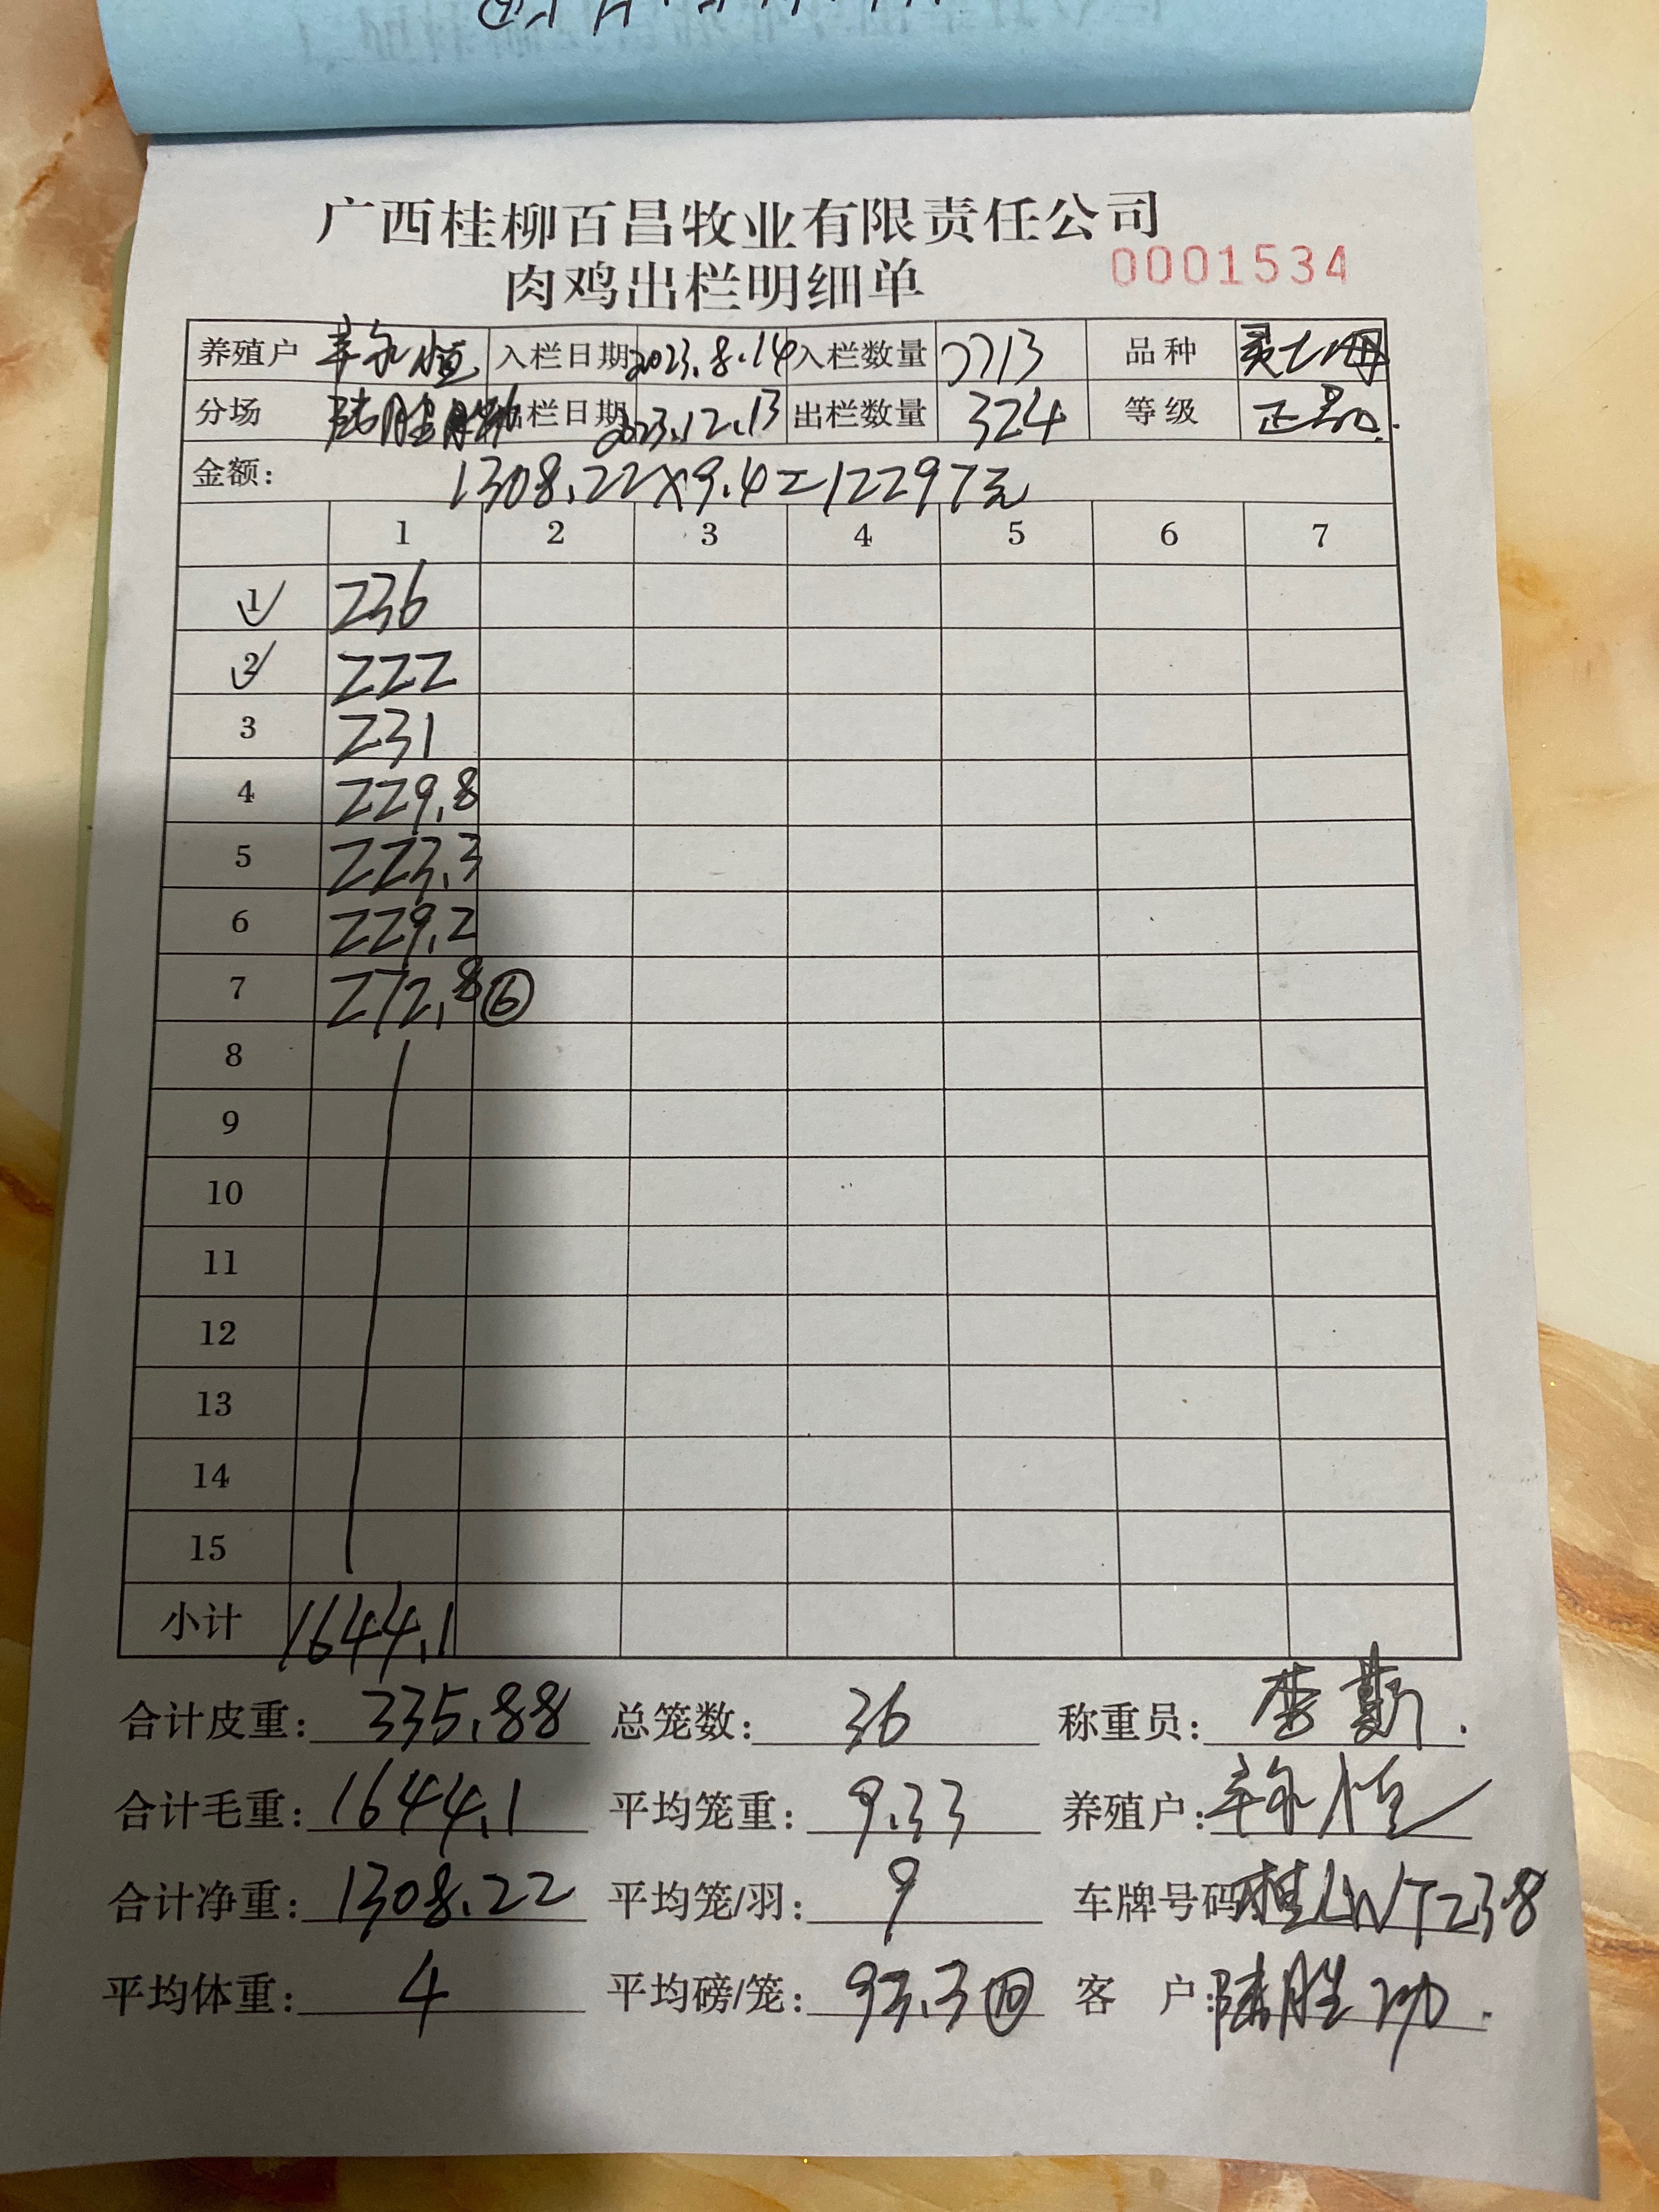 广西桂柳百昌牧业有限责任公司
肉鸡出栏明细单 0001534
养殖户 入栏日期 2023.8.14 入栏数量 7713 品种
分场 陆胜 出栏日期 2023.12.13 出栏数量 324 等级 正品
金额: 1308.22×9.4=12297元
1 2 3 4 5 6 7
1 236
2 222
3 231
4 229.8
5 223.3
6 229.2
7 272.8 ⑥
8
9
10
11
12
13
14
15
小计 1644.1
合计皮重: 335.88 总笼数: 36 称重员:
合计毛重: 1644.1 平均笼重: 9.33 养殖户: 恒
合计净重: 1308.22 平均笼/羽: 9 车牌号码 桂LWT238
平均体重: 4 平均磅/笼: 93.3 ⑩ 客户: 陆胜功